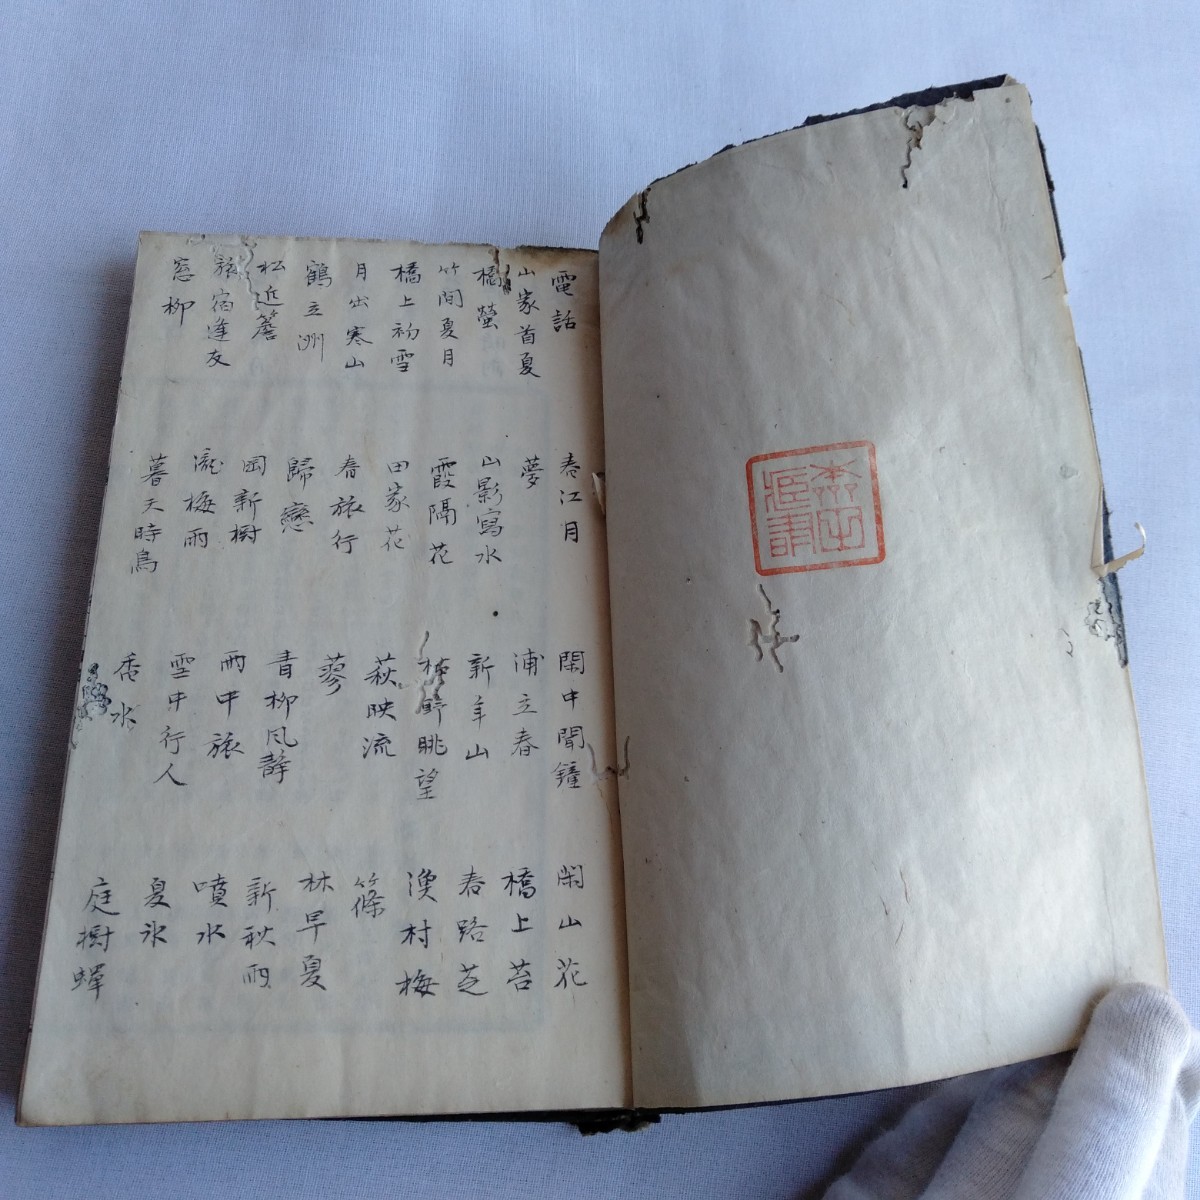 電話
山家首夏
橘螢
竹間夏月
橋上初雪
月出寒山
鶴立洲
松近簷
旅宿逢友
窓柳
春江月
夢
山影寫水
霞隔花
田家花
春旅行
歸戀
岡新樹
瀧梅雨
暮天時鳥
閑中聞鐘
浦立春
新年山
野眺望
萩映流
蓼
青柳風静
雨中旅
雪中行人
香水
閑山花
橋上苔
春路芝
漁村梅
篠
林早夏
新秋雨
噴水
夏氷
庭樹蟬
本田
蔵書